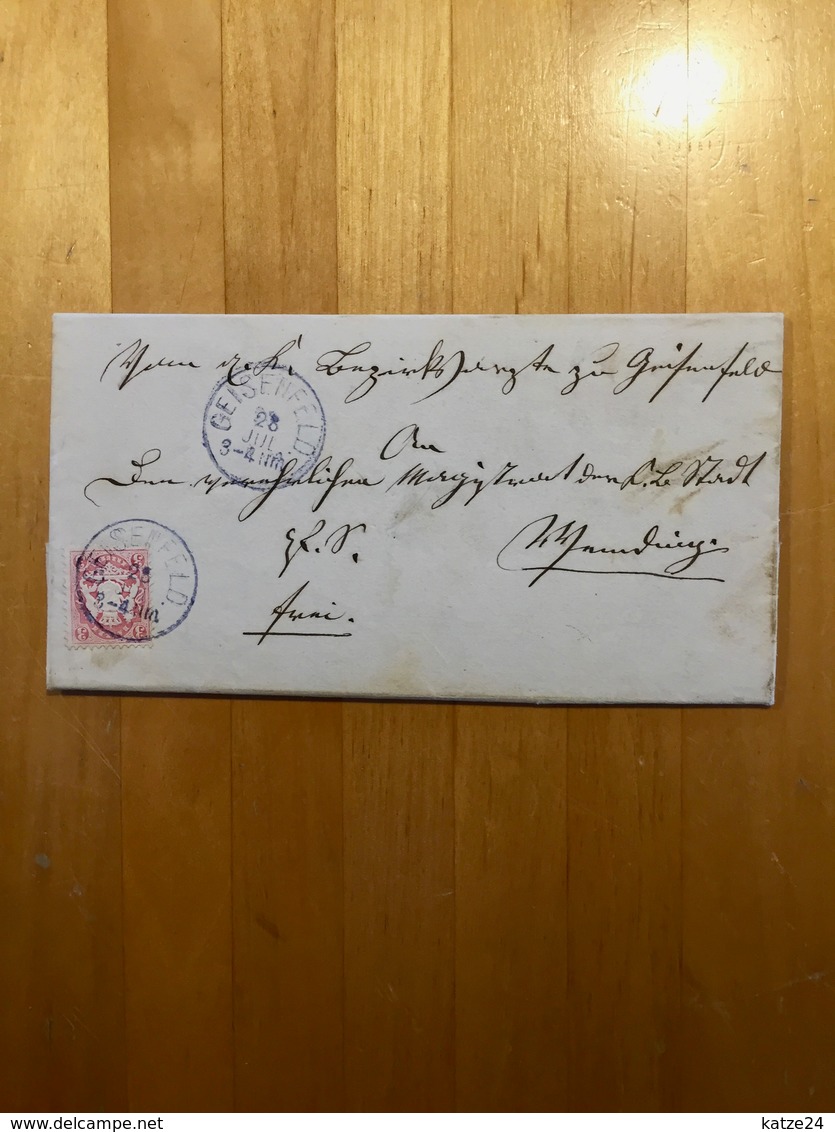 Vom k. K. Bezirksarzte zu Geisenfeld
GEISENFELD
28
JUL.
3-4 Nm
An
Den verehrlichen Magistrat der k. b. Stadt
Wemding.
frei.
GEISENFELD
28
3-4 Nm
3
3
3
© delcampe.net
katze24